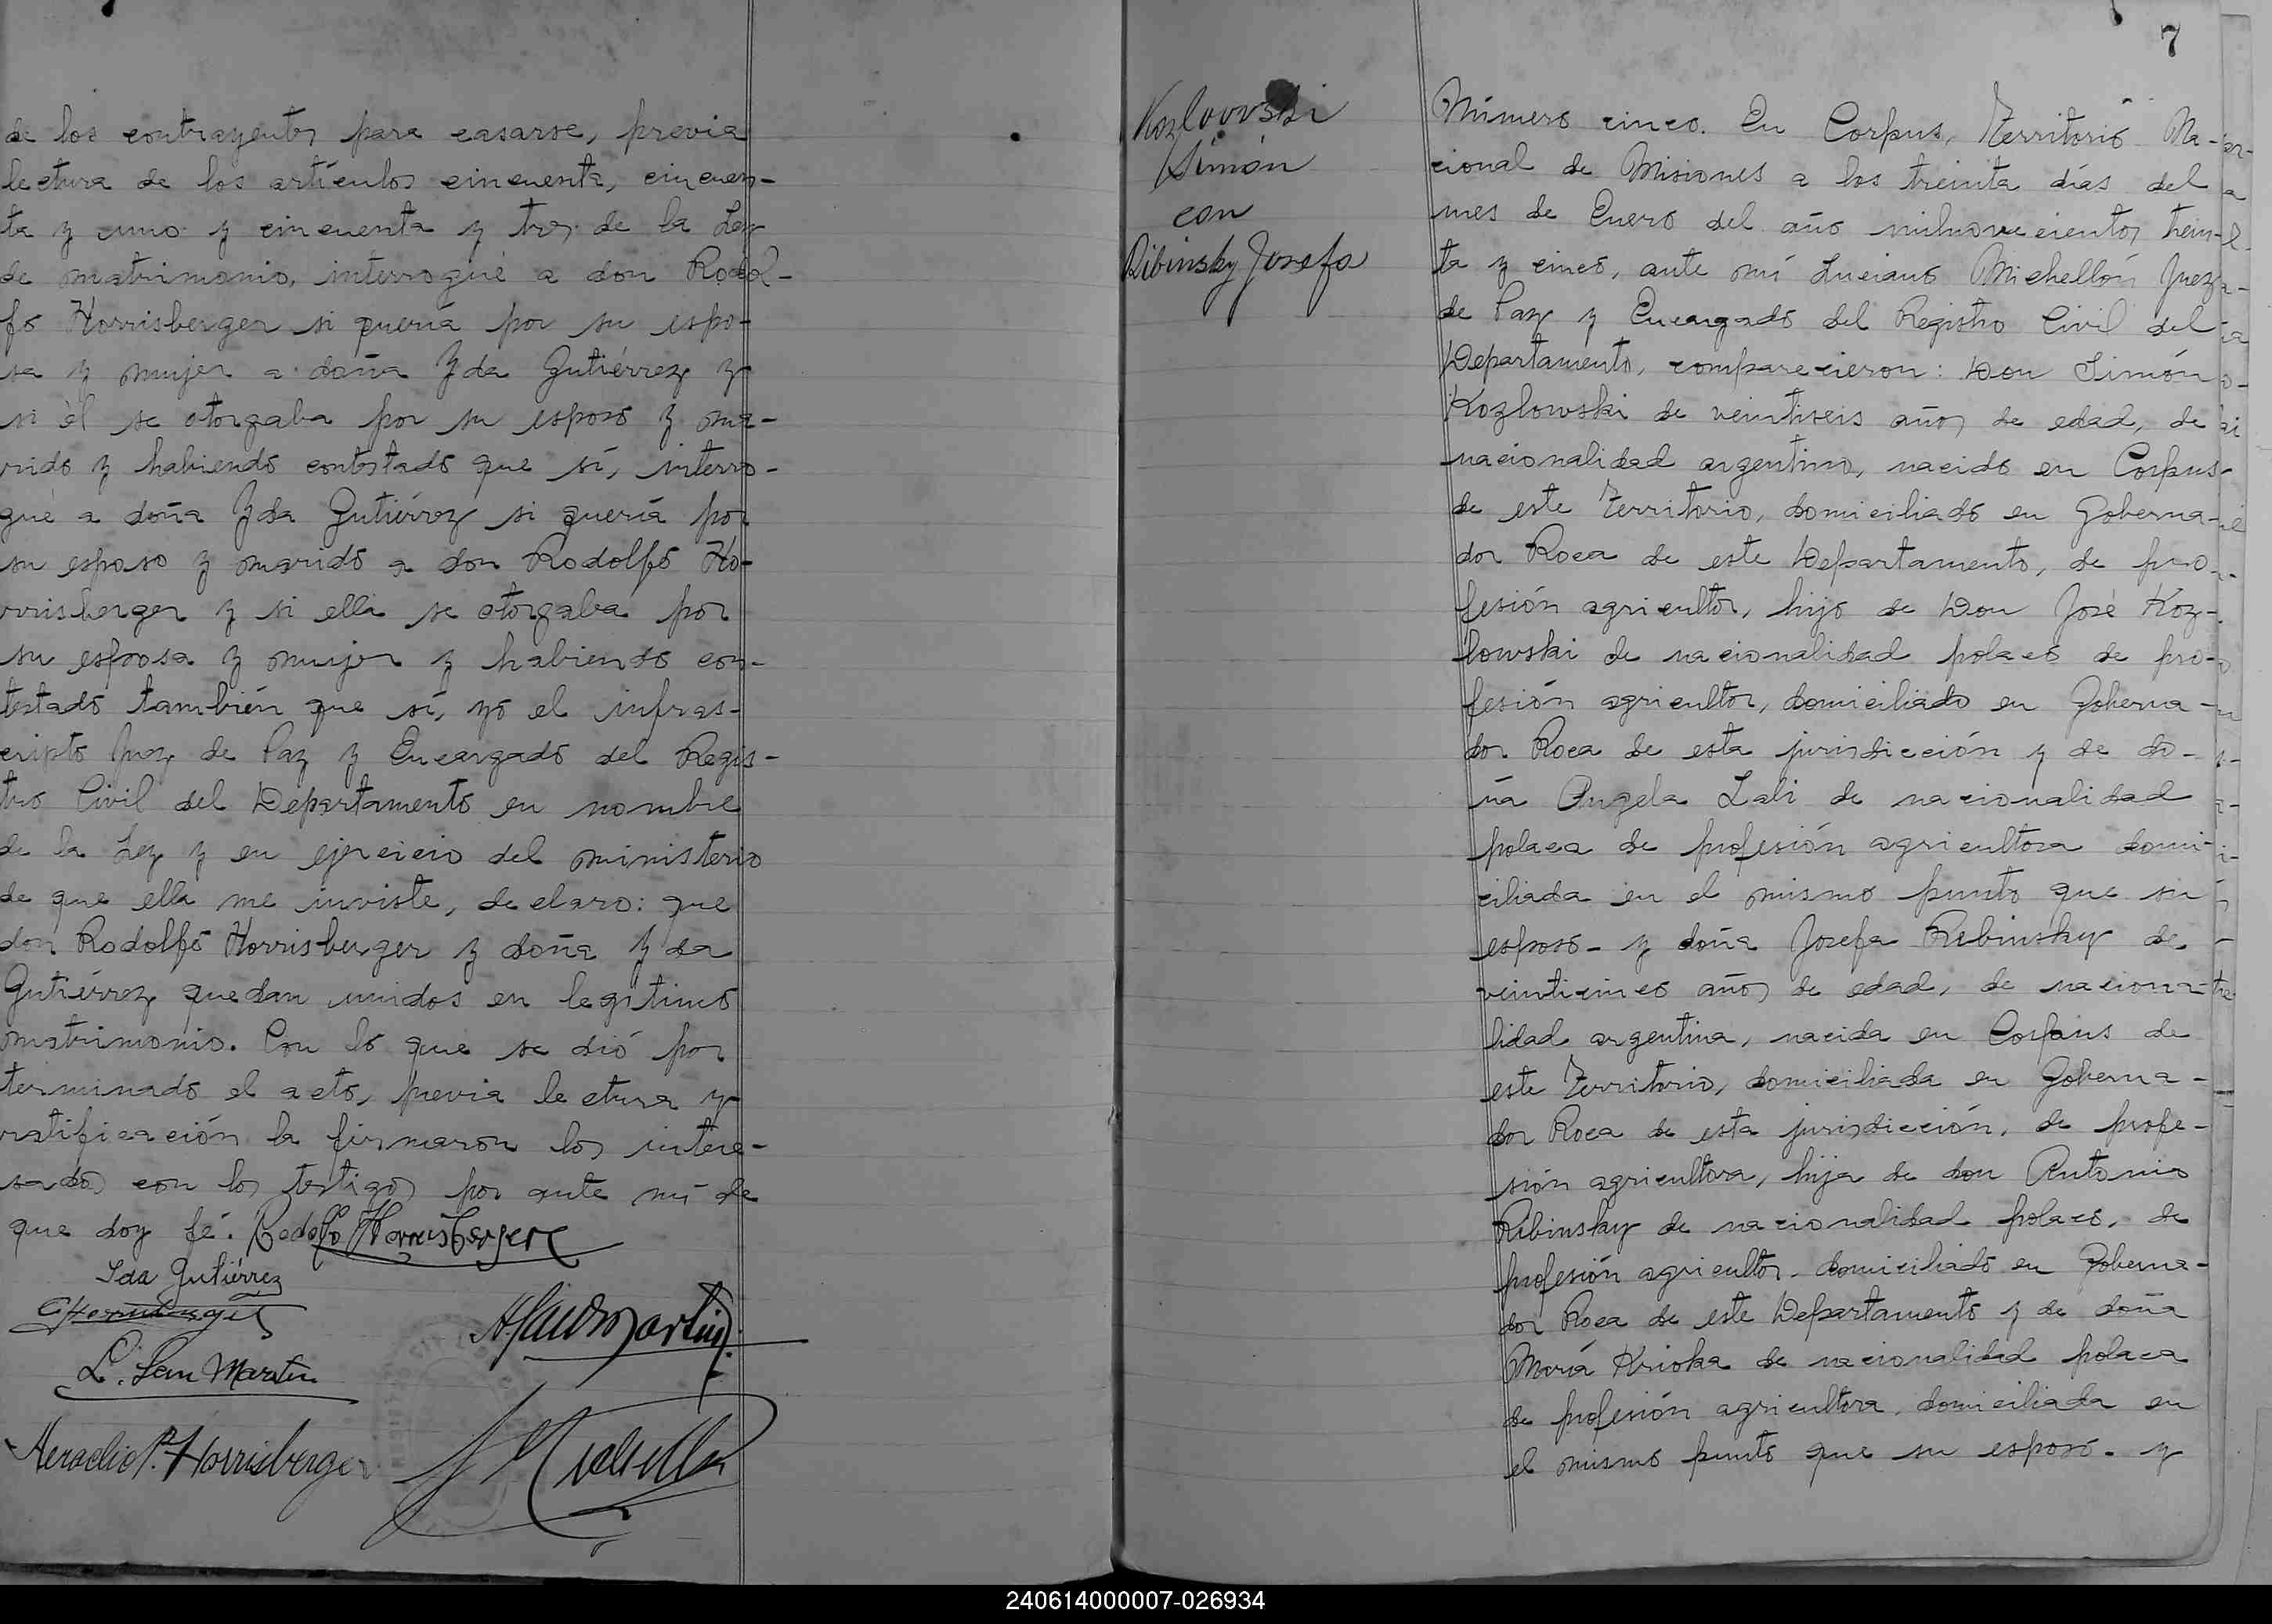 de los contrayentes para casarse, previa
lectura de los artículos cincuenta, cincuen-
ta y uno y cincuenta y tres de la Ley
de matrimonio, interrogué a don Rodol-
fo Horrisberger si quería por su espo-
sa y mujer a doña Yda Gutiérrez y
si él se otorgaba por su esposo y ma-
rido y habiendo contestado que sí, interro-
gué a doña Yda Gutiérrez si quería por
su esposo y marido a don Rodolfo Ho-
rrisberger y si ella se otorgaba por
su esposa y mujer y habiendo con-
testado también que sí, yo el infras-
cripto Juez de Paz y Encargado del Regis-
tro Civil del Departamento en nombre
de la Ley y en ejercicio del ministerio
de que ella me inviste, declaro: que
don Rodolfo Horrisberger y doña Yda
Gutiérrez quedan unidos en legítimo
matrimonio. Con lo que se dió por
terminado el acto, previa lectura y
ratificación la firmaron los intere-
sados con los testigos por ante mí de
que doy fé. Rodolfo Horrisberger
Ida Gutiérrez
L. San Martin
Heraclio P. Horrisberger
7
Kozlowski
Simón
con
Ribinsky Josefa
Número cinco. En Corpus, Territorio Na-
cional de Misiones a los treinta días del
mes de Enero del año milnovecientos trein-
ta y cinco, ante mí Luciano Michellón Juez
de Paz y Encargado del Registro Civil del
Departamento, comparecieron: Don Simón
Kozlowski de veintiseis años de edad, de
nacionalidad argentino, nacido en Corpus
de este Territorio, domiciliado en Goberna-
dor Roca de este Departamento, de pro-
fesión agricultor, hijo de Don José Koz-
lowski de nacionalidad polaco de pro-
fesión agricultor, domiciliado en Goberna-
dor Roca de esta jurisdicción y de do-
ña Angela Lali de nacionalidad
polaca de profesión agricultora domi-
ciliada en el mismo punto que su
esposo- y doña Josefa Ribinsky de
veinticinco años de edad, de naciona-
lidad argentina, nacida en Corpus de
este Territorio, domiciliada en Goberna-
dor Roca de esta jurisdicción, de profe-
sión agricultora, hija de don Antonio
Ribinsky de nacionalidad polaco, de
profesión agricultor- domiciliado en Goberna-
dor Roca de este Departamento y de doña
María Krioka de nacionalidad polaca
de profesión agricultora, domiciliada en
el mismo punto que su esposo- y
240614000007-026934